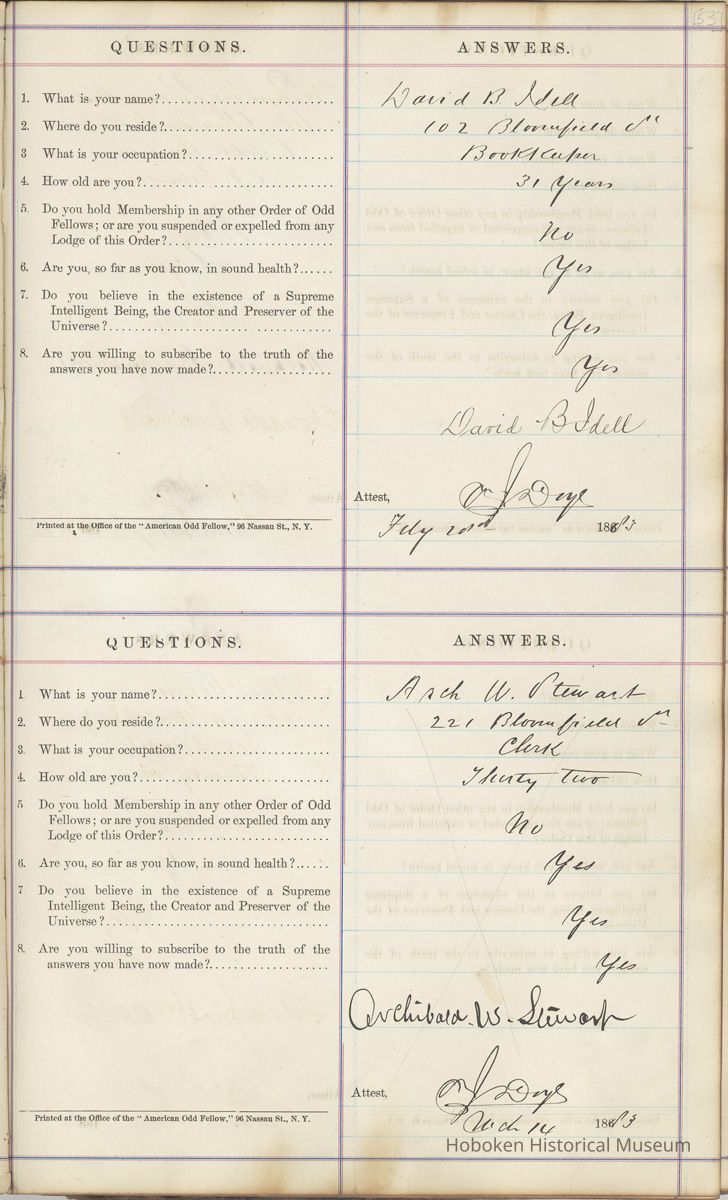 537
QUESTIONS. ANSWERS.
1. What is your name? David B. Idell
2. Where do you reside? 102 Bloomfield St
3 What is your occupation? Bookkeeper
4. How old are you? 31 Years
5. Do you hold Membership in any other Order of Odd
Fellows; or are you suspended or expelled from any
Lodge of this Order? No
6. Are you, so far as you know, in sound health? Yes
7. Do you believe in the existence of a Supreme
Intelligent Being, the Creator and Preserver of the
Universe? Yes
8. Are you willing to subscribe to the truth of the
answers you have now made? Yes
David B Idell
Attest, Doyle
Printed at the Office of the "American Odd Fellow," 96 Nassau St., N. Y.
Feby 1883
QUESTIONS. ANSWERS.
1 What is your name? Arch W. Stewart
2. Where do you reside? 221 Bloomfield St
3. What is your occupation? Clerk
4. How old are you? Thirty two
5. Do you hold Membership in any other Order of Odd
Fellows; or are you suspended or expelled from any
Lodge of this Order? No
6. Are you, so far as you know, in sound health? Yes
7. Do you believe in the existence of a Supreme
Intelligent Being, the Creator and Preserver of the
Universe? Yes
8. Are you willing to subscribe to the truth of the
answers you have now made? Yes
Archibald. W. Stewart
Attest, Doyle
Printed at the Office of the "American Odd Fellow," 96 Nassau St., N. Y.
Mch 14 1883
Hoboken Historical Museum